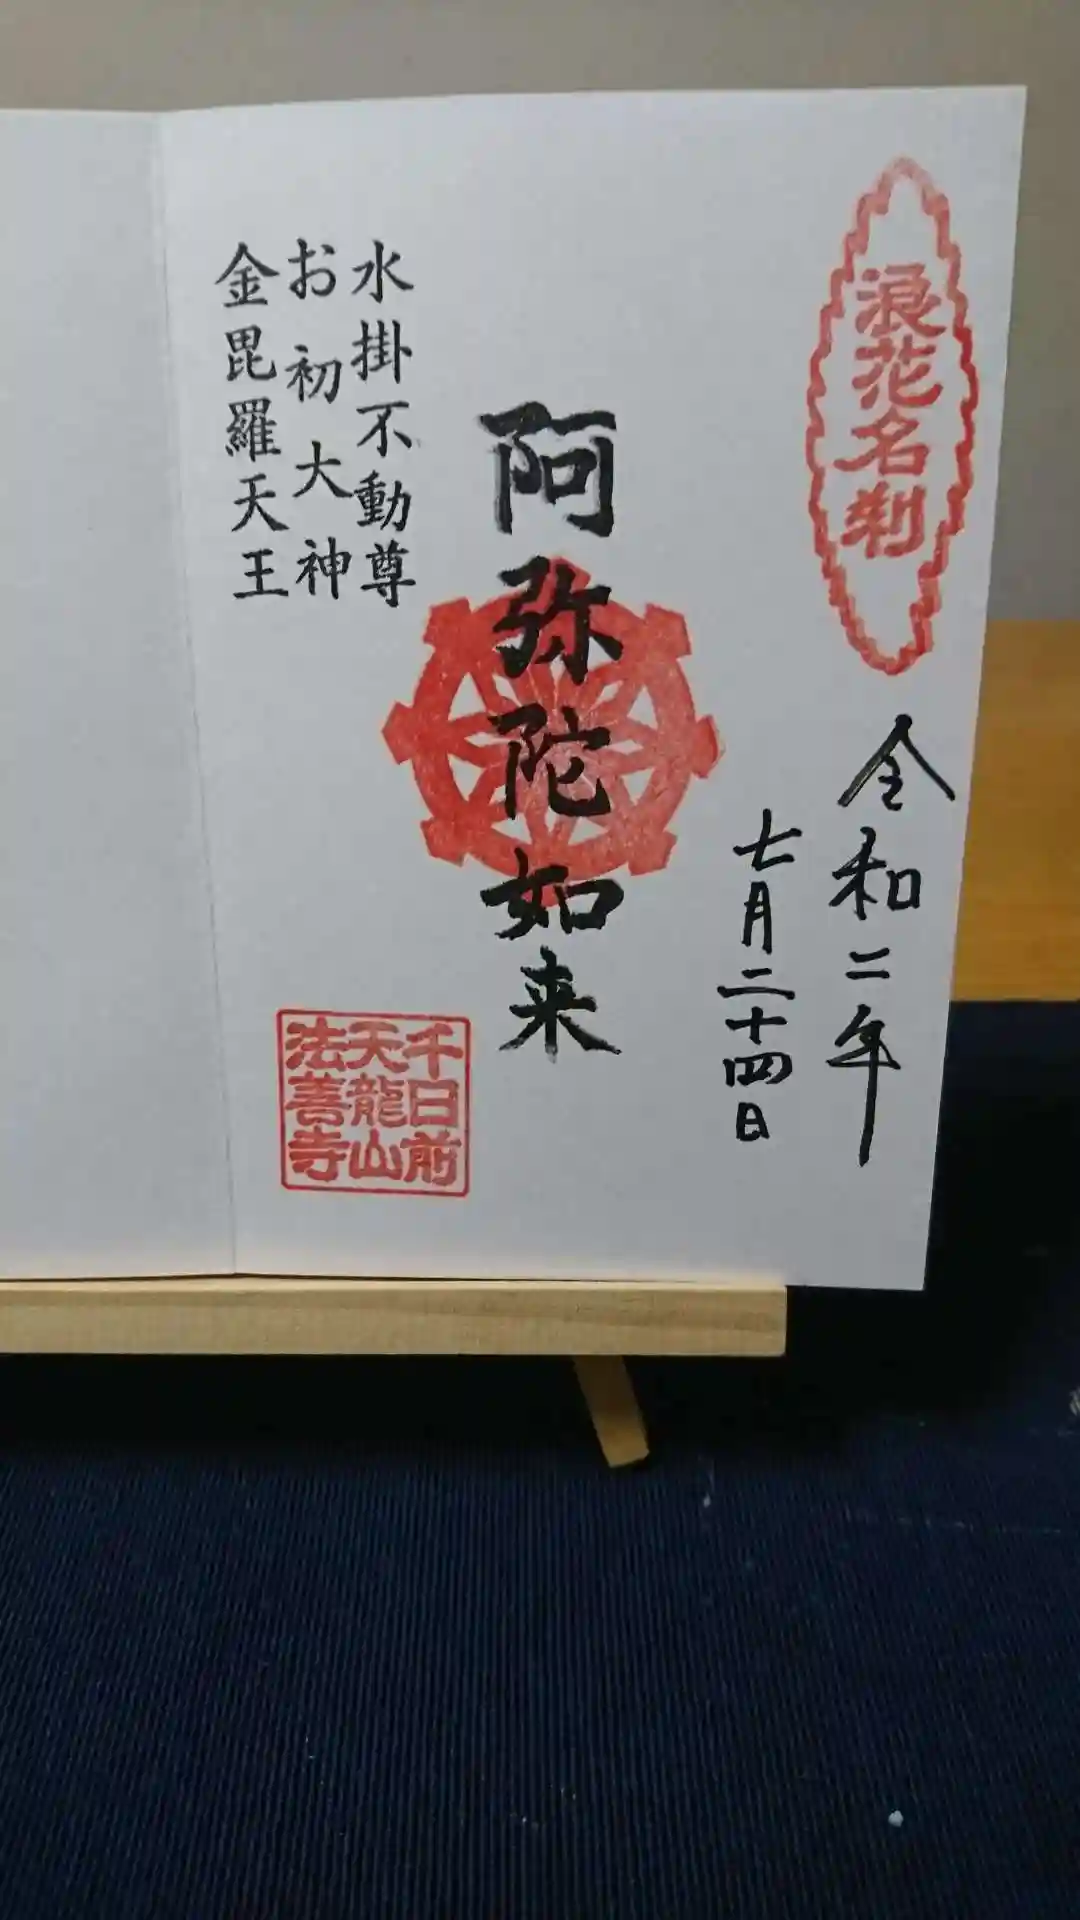 浪花名刹
令和二年
七月二十四日
阿弥陀如来
水掛不動尊
お初大神
金毘羅天王
千日前
天龍山
法善寺